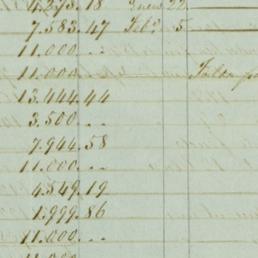 4.273.18 June 22
7.583.47 Feby 5
11.000...
11.000...
13.444.44
3.500...
7.944.58
11.000...
4.849.19
1.999.86
11.000...
11.000